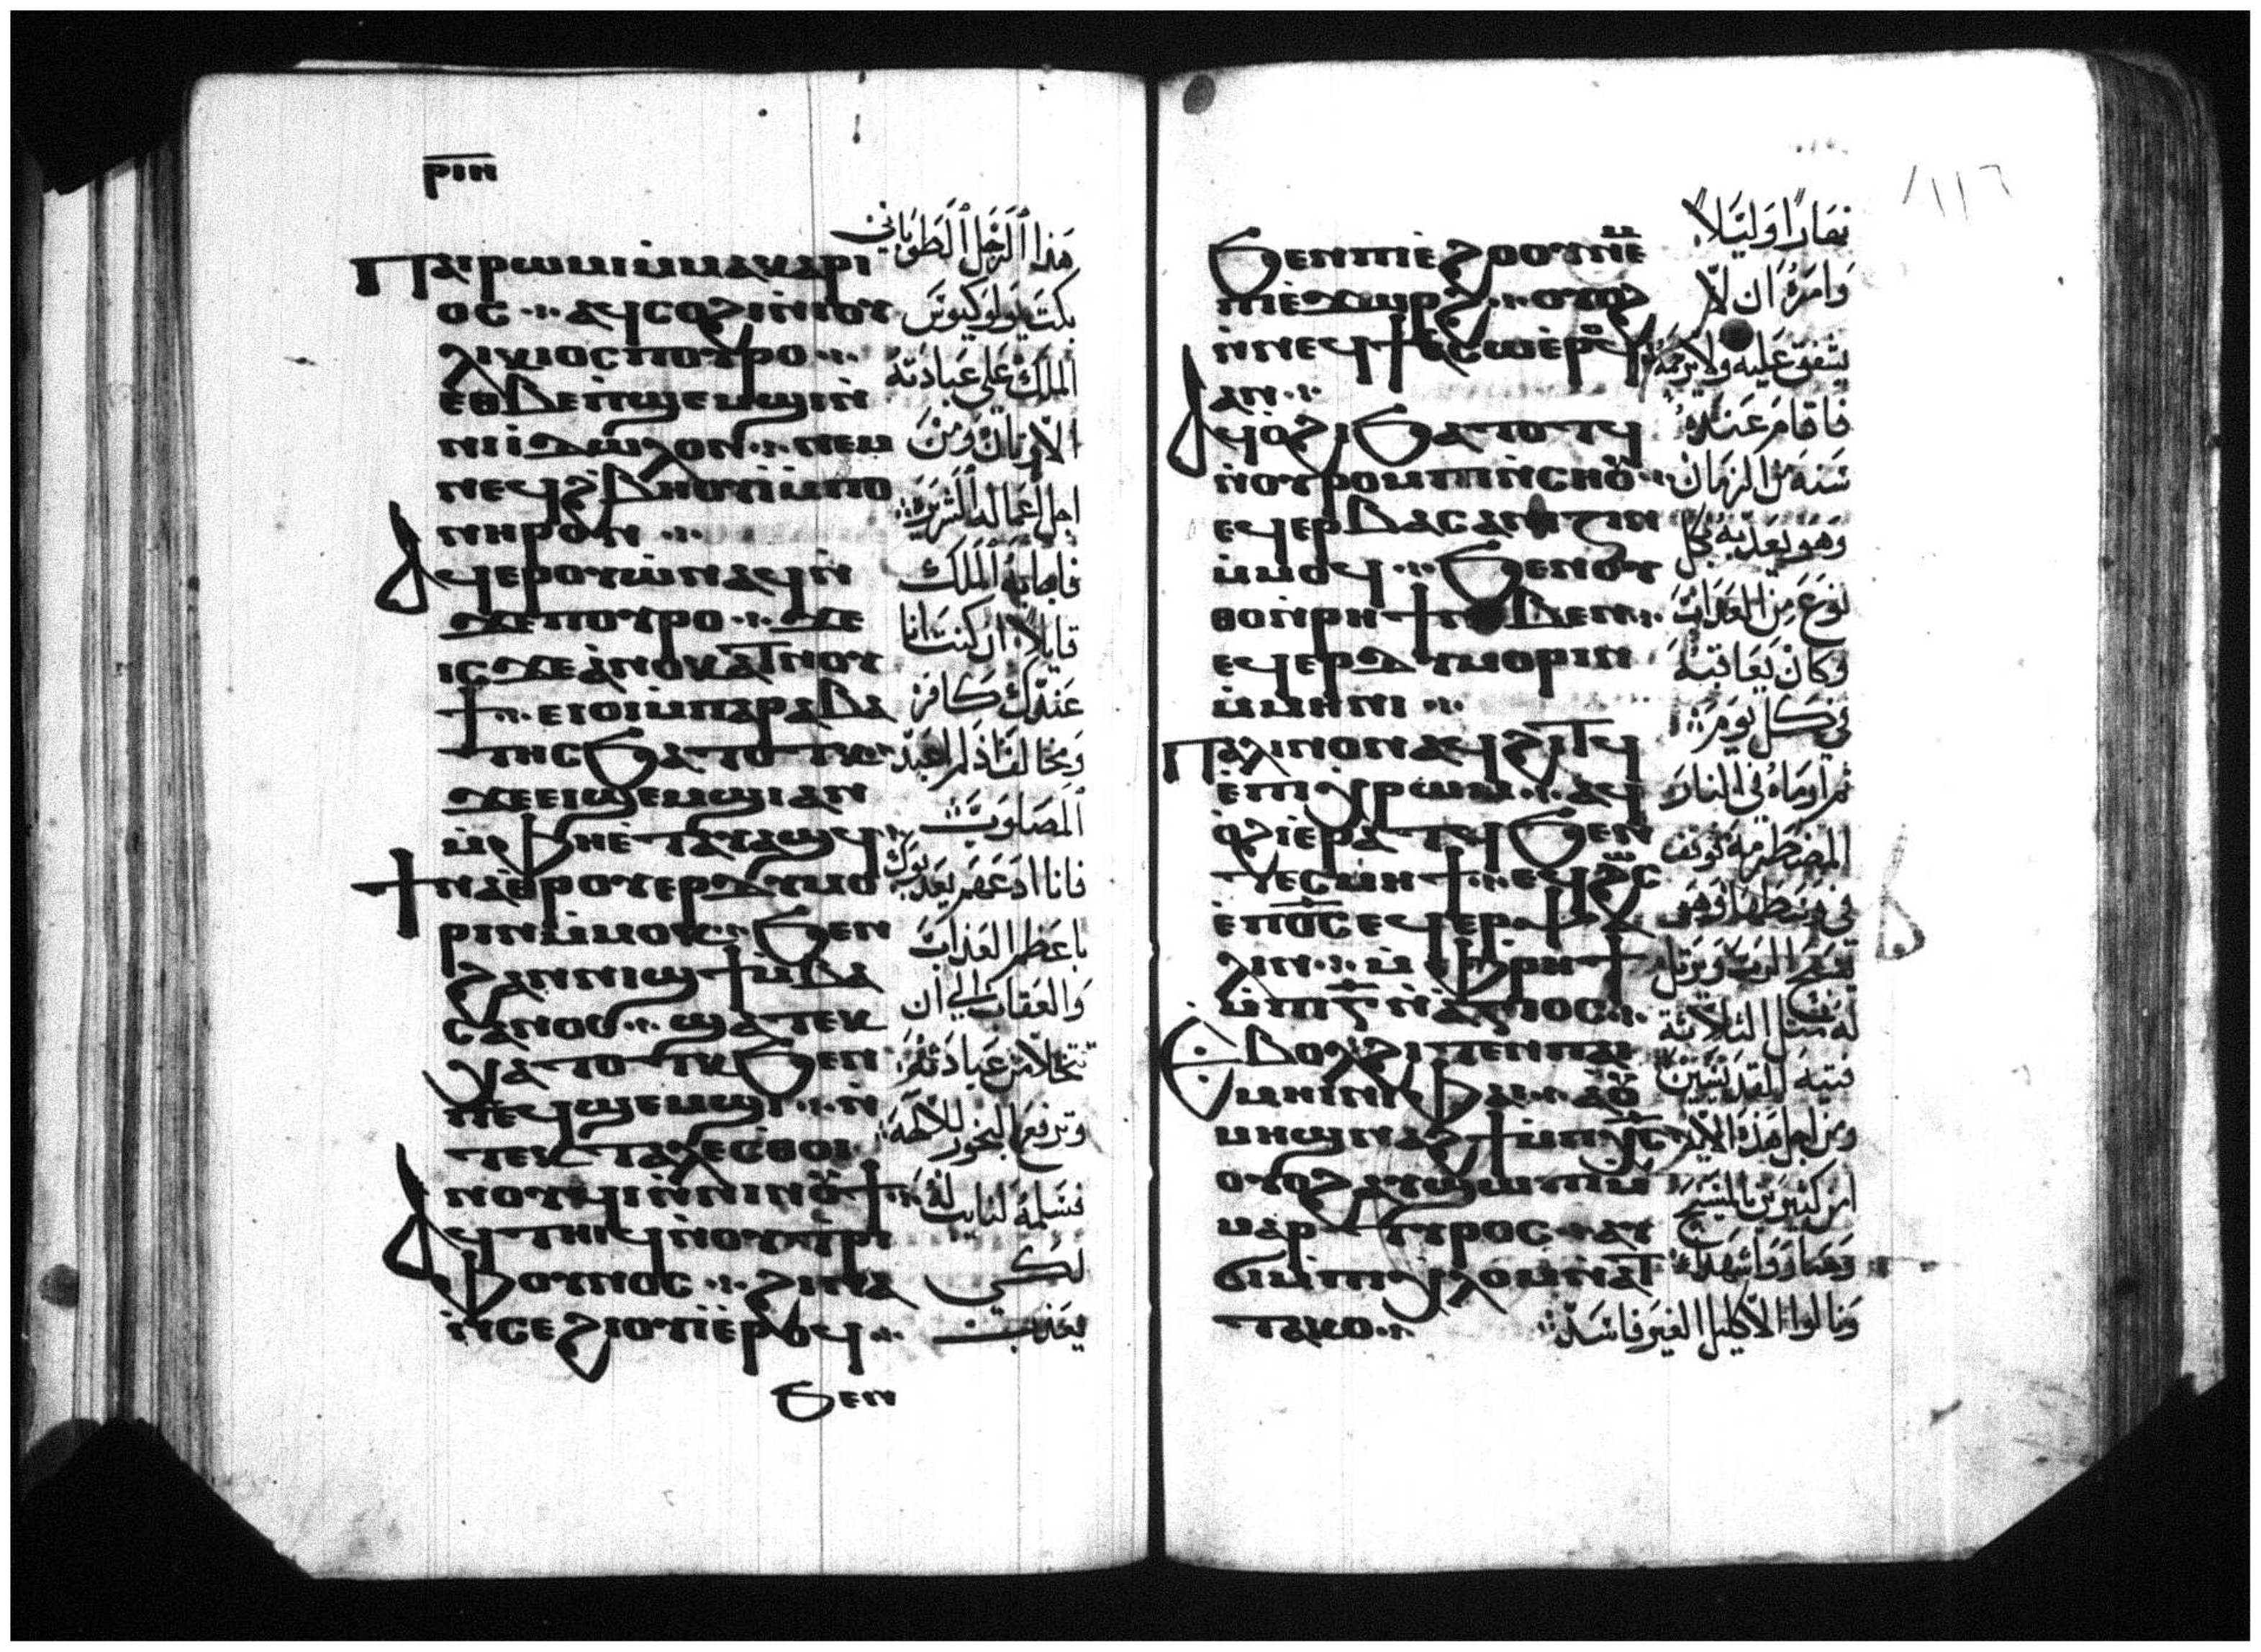 ⲣⲓⲏ
Ⲡⲁⲓⲣⲱⲙⲓ ⲙ̀ⲙⲁⲕⲁⲣⲓ
ⲟⲥ ⲁϥⲥⲟϩⲓ ⲛ̀ⲓⲟⲩ
ⲗⲓⲕⲓⲟⲥ ⲡⲟⲩⲣⲟ
ⲉⲑⲃⲉ ⲡ̀ϣⲉⲙϣⲓ ⲛ̀
ⲛⲓⲓ̀ⲇⲱⲗⲟⲛ ⲛⲉⲙ
ⲛⲉϥϩ̀ⲃⲏⲟⲩⲓ̀ ⲙ̀ⲡⲟ
ⲛⲏⲣⲟⲛ
Ⲁϥⲉⲣⲟⲩⲱ̀ ⲛⲁϥ ⲛ̀
ϫⲉ ⲡⲟⲩⲣⲟ ϫⲉ
ⲓⲥϫⲉ ⲁ̀ⲛⲟⲕ ⲁⲧⲛⲟⲩ
ϯ ⲉⲓⲟⲓ ⲙ̀ⲡⲁⲣⲁⲃⲁ
ⲧⲏⲥ ϧⲁⲧⲟⲧⲕ
ϫⲉ ⲉⲓϣⲉⲙϣⲓ ⲁⲛ
ⲙ̀ⲫⲏ ⲉ̀ⲧⲁⲩⲁϣϥ
Ϯⲛⲁⲑⲣⲟⲩⲉⲣⲇⲩⲙⲟ
ⲣⲓⲛ ⲙ̀ⲙⲟⲕ ϧⲉⲛ
ϩⲁⲛⲛⲓϣϯ ⲙ̀ⲃⲁ
ⲥⲁⲛⲟⲥ ϣⲁⲧⲉⲕ
ⲭⲁⲧⲟⲧⲕ ϧⲉⲛ
ⲡⲉϥϣⲉⲙϣⲓ ⲛ̀
ⲧⲉⲕⲧⲁⲗⲉ ⲥⲑⲟⲓ
ⲛⲟⲩϥⲓ ⲛ̀ⲛⲓⲛⲟⲩϯ
Ⲁϥⲧⲏⲓϥ ⲛ̀ⲟⲩⲧⲣⲓ
ⲃⲟⲩⲛⲟⲥ ϩⲓⲛⲁ
ⲛ̀ⲥⲉϩⲓⲟⲩⲓ̀ ⲉ̀ⲣⲟϥ
ϧⲉⲛ
هذا الرجل الطوباني
بكت يولوكيوس
الملك على عبادته
الاوثان ومن
اجل اعماله الشريرة
فاجابه الملك
قايلا ان كنت انا
عندك كافر
ومخالف اذ لم اعبد
المصلوب
فانا ادعهم يعذبوك
باعظم العذاب
والعقاب الي ان
تتخلا من عبادته
وترفع البخور للالهة
فسلمه لنايب
لكي
يعذب
١١٦
ϧⲉⲛ ⲡⲓⲉ̀ϩⲟⲟⲩ ⲛⲉⲙ
ⲡⲓⲉ̀ϫⲱⲣϩ ⲟⲩⲟϩ
ⲛ̀ⲛⲉϥϯⲁⲥⲱ ⲉ̀ⲣⲟϥ
ⲁⲛ
Ⲁϥⲟ̀ϩⲓ ϧⲁⲧⲟⲧϥ
ⲛ̀ⲟⲩⲣⲟⲙⲡⲓ ⲛ̀ⲥⲏⲟⲩ
ⲉϥⲉⲣⲃⲁⲥⲁⲛⲓⲍⲓⲛ
ⲙ̀ⲙⲟϥ ϧⲉⲛ ⲟⲩ
ⲑⲟ ⲛ̀ⲣⲏϯ ⲛⲓⲃⲉⲛ
ⲉϥⲉⲣⲇⲩⲙⲟⲣⲓⲛ
ⲙ̀ⲙⲏⲛⲓ
Ⲡⲁⲗⲓⲛ ⲟⲛ ⲁϥϩⲓⲧϥ
ⲉ̀ⲡⲓⲭⲣⲱⲙ ⲁϥ
ⲟ̀ϩⲓ ⲉ̀ⲣⲁⲧϥ ϧⲉⲛ
ⲧⲉⲥⲙⲏϯ ⲉϥϩⲱⲥ
ⲉ̀ⲡ̅ⲟ̅ⲥ̅ ⲉϥⲉⲣⲯⲁ
ⲗⲓⲛ ⲙ̀ⲫ̀ⲣⲏϯ
ⲙ̀ⲡⲓⲅ̅ ⲛ̀ⲁ̀ⲅⲓⲟⲥ
Ⲉⲃⲟⲗ ϩⲓⲧⲉⲛ ⲡⲁⲓ
ⲙⲏⲓⲛⲓ ⲫⲁⲓ ⲁⲟⲩ
ⲙⲏϣ ⲛⲁϩϯ ⲙ̀ⲡ̅ⲭ̅ⲥ̅
ⲟⲩⲟϩ ⲁⲩϣⲱⲡⲓ ⲙ̀
ⲙⲁⲣⲧⲩⲣⲟⲥ ⲁⲩ
ϭⲓ ⲙ̀ⲡⲓⲭⲗⲟⲙ ⲛ̀ⲁⲧ
ⲧⲁⲕⲟ
نهارا وليلا
وامره ان لا
يشفق عليه ولا يرحمه
فاقام عنده
سنة من الزمان
وهو يعذبه بكل
نوع من العذاب
وكان يعاقبه
في كل يوم
ثم ارماه في النار
المضطرمة فوقف
في وسطها وهو
يسبح الرب ويرتل
له مثل الثلاثة
فتية القديسين
ومن اجل هذه الاية
امن كثيرين بالمسيح
وصاروا شهداء
ونالوا الاكليل الغير فاسد